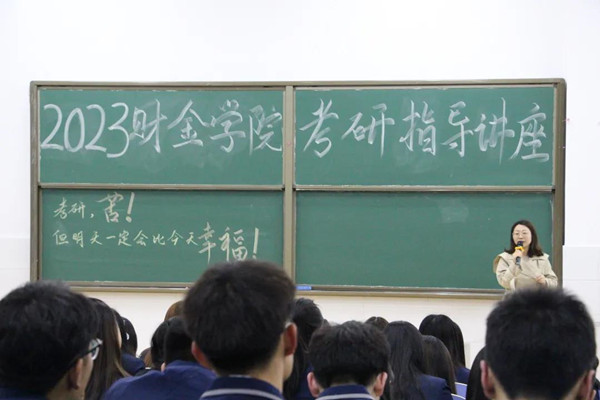 2023财金学院 考研指导讲座
考研，苦！
但明天一定会比今天幸福！